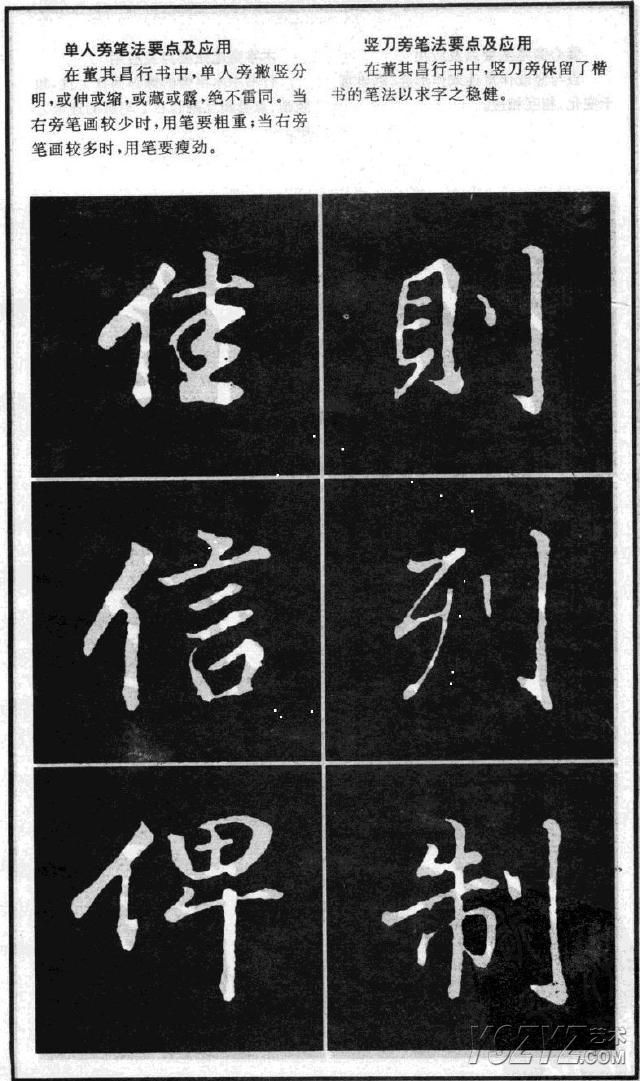 单人旁笔法要点及应用
在董其昌行书中,单人旁撇竖分
明,或伸或缩,或藏或露,绝不雷同。当
右旁笔画较少时,用笔要粗重;当右旁
笔画较多时,用笔要瘦劲。
竖刀旁笔法要点及应用
在董其昌行书中,竖刀旁保留了楷
书的笔法以求字之稳健。
佳
信
俾
則
列
制
YGZYZ艺术
.COM